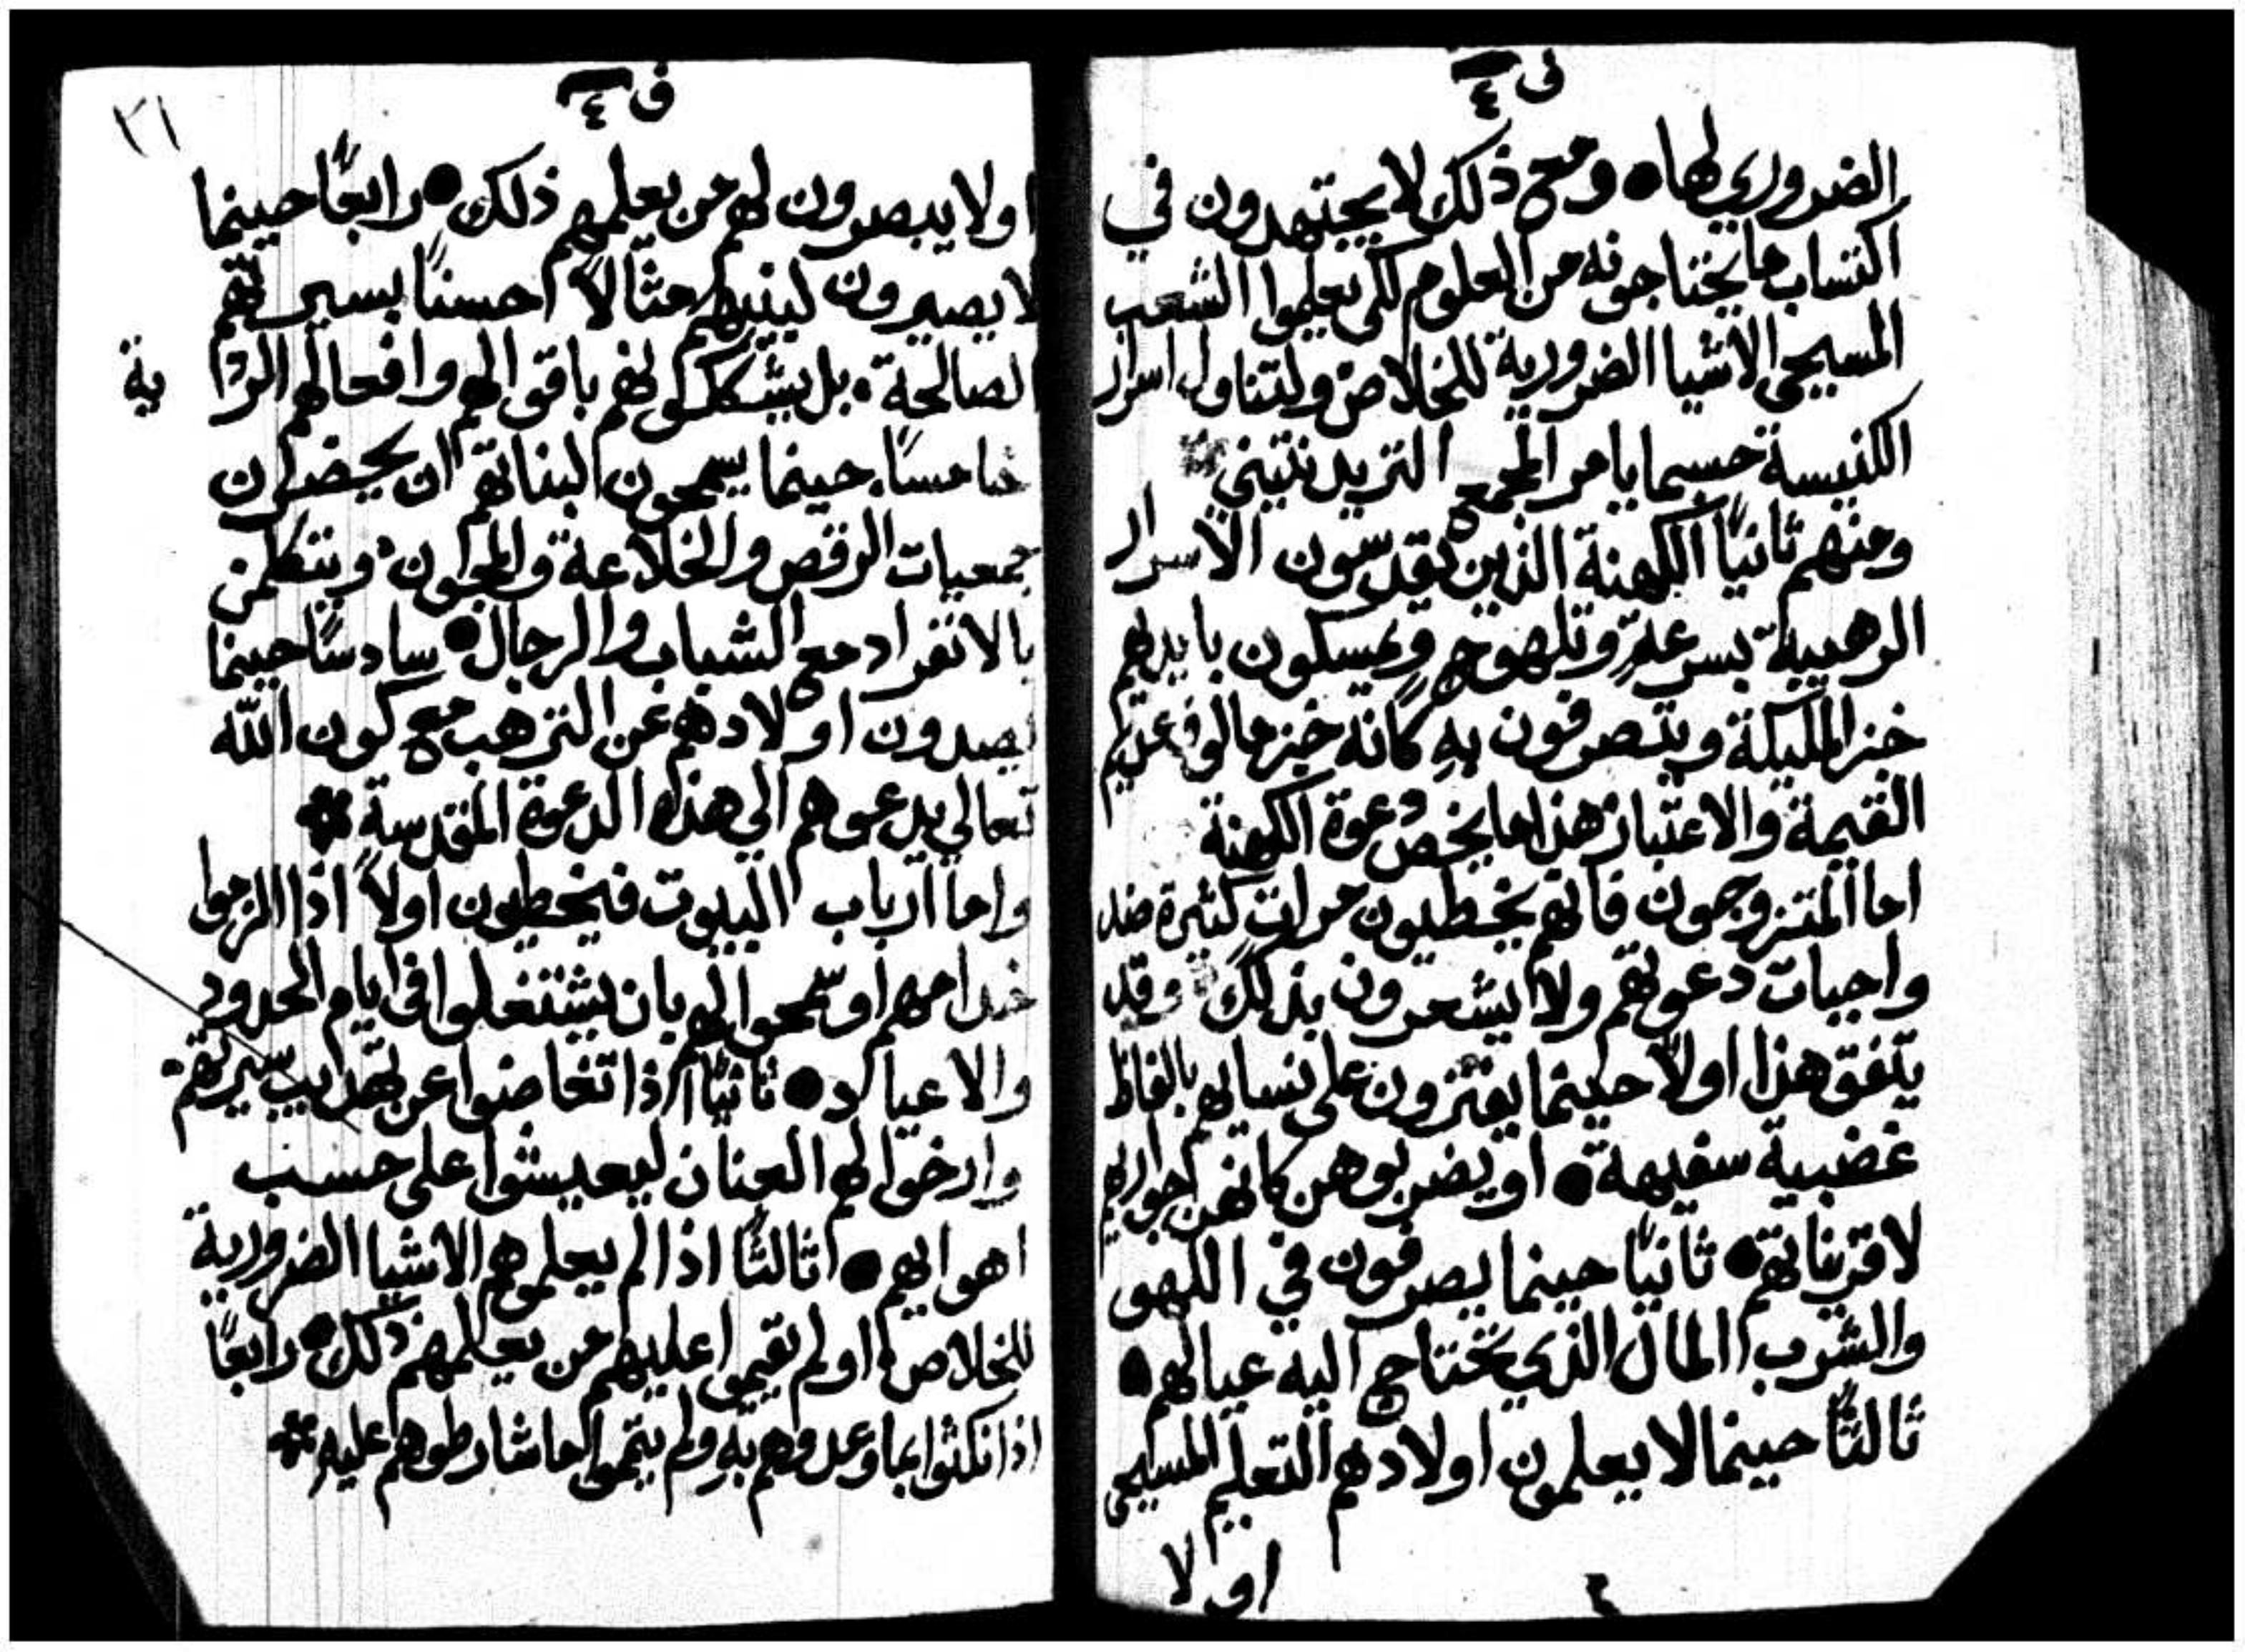 ف ٤
الضروري لها ● ومع ذلك لا يجتهدون في
اكتساب ما يحتاجونه من العلوم لكي يعلموا الشعب
المسيحي الاشيا الضرورية للخلاص ولتناول اسرار
الكنيسة حسبما يامر المجمع التريدنتيني
ومنهم ثانيًا الكهنة الذين يقدسون الاسرار
الرهيبة بسرعةٍ وتلهوجٍ ويمسكون بايديهم
خبز المليكة ويتصرفون به كانه خبز مالوف عديم
القيمة والاعتبار هذا ما يخص دعوة الكهنة
اما المتزوجون فانهم يخطيون مرات كثيرة ضد
واجبات دعوتهم ولا يشعرون بذلك وقد
يتفق هذا اولاً حينما يفترون على نسايهم بالفاظ
غضبية سفيهة ● او يضربوهن كانهن جواريهم
لا قريناتهم ● ثانيًا حينما يصرفون في اللهو
والشرب المال الذي يحتاج اليه عيالهم ●
ثالثًا حينما لا يعلمون اولادهم التعليم المسيحي
او لا
ف ٤
٢١
او لا يبصرون لهم من يعلمهم ذلك ● رابعًا حينما
لا يصيرون لبنيهم مثالاً حسنًا بسيرتهم
الصالحة ● بل يشككونهم باقوالهم وافعالهم الردية
خامسًا حينما يسمحون لبناتهم ان يحضرن
جمعيات الرقص والخلاعة والمجون ويتكلمن
بالانفراد مع الشباب والرجال ● سادسًا حينما
يصدون اولادهم عن الترهب مع كون الله
تعالي يدعوهم الي هذه الدعوة المقدسة
واما ارباب البيوت فيخطيون اولاً اذا الزموا
خدامهم او سمحوا لهم بان يشتغلوا في ايام الحدود
والاعياد ● ثانيًا اذا تغاضوا عن تهذيب سيرتهم
وارخوا لهم العنان ليعيشوا على حسب
اهوايهم ● ثالثًا اذا لم يعلموهم الاشيا الضرورية
للخلاص او لم يقيموا عليهم من يعلمهم ذلك ● رابعًا
اذا نكثوا بما وعدوهم به ولم يتموا ما شارطوهم عليه